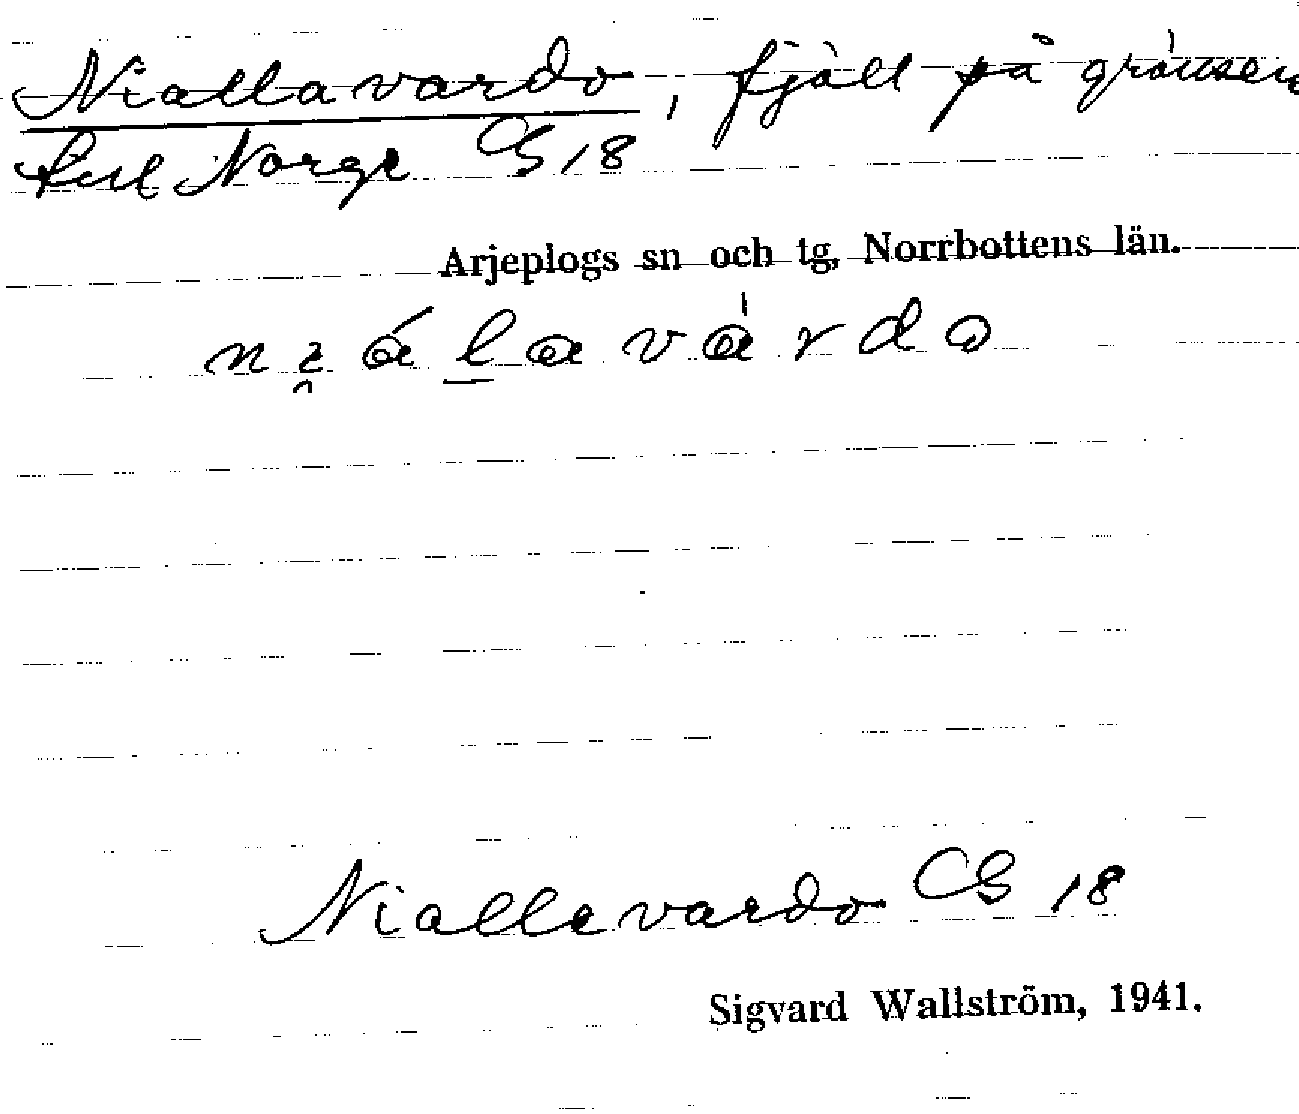 Niallavardo, fjäll på gränsen
till Norge GS 18
Arjeplogs sn och tg, Norrbottens län.
Niallevardo GS 18
Sigvard Wallström, 1941.